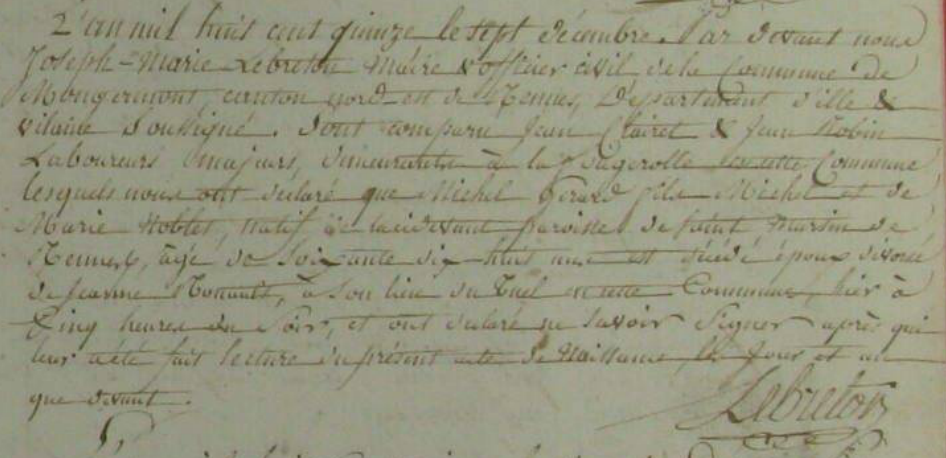 L'an mil huit cent quinze le sept décembre. Par devant nous
Joseph-Marie Lebreton Maire & officier civil de la Commune de
Mongermont, canton nord-est de Rennes, Département d'ille &
vilaine Soussigné. Sont comparu Jean Clairet & Jean Robin
Laboureurs majeurs, demeurants à la en cette Commune
lesquels nous ont déclaré que Michel Gérard fils Michel et de
Marie Noblet, natif de la cidevant paroisse de saint Martin de
Rennes, âgé de soixante dix-huit ans est décédé époux divorcé
de Jeanne à son lieu du Tuel en cette Commune, hier à
Cinq heures du Soir, et ont déclaré ne savoir Signer après qui
leur a été fait lecture du présent acte de Naissance, les Jour et an
que devant.
Lebreton